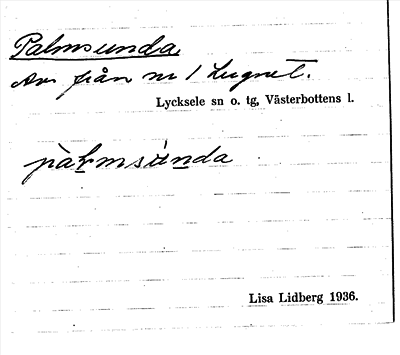 Palmsunda,
Avs från nr 1 Lugnet.
Lycksele sn o. tg, Västerbottens l.
pàḷmsùnda
Lisa Lidberg 1936.